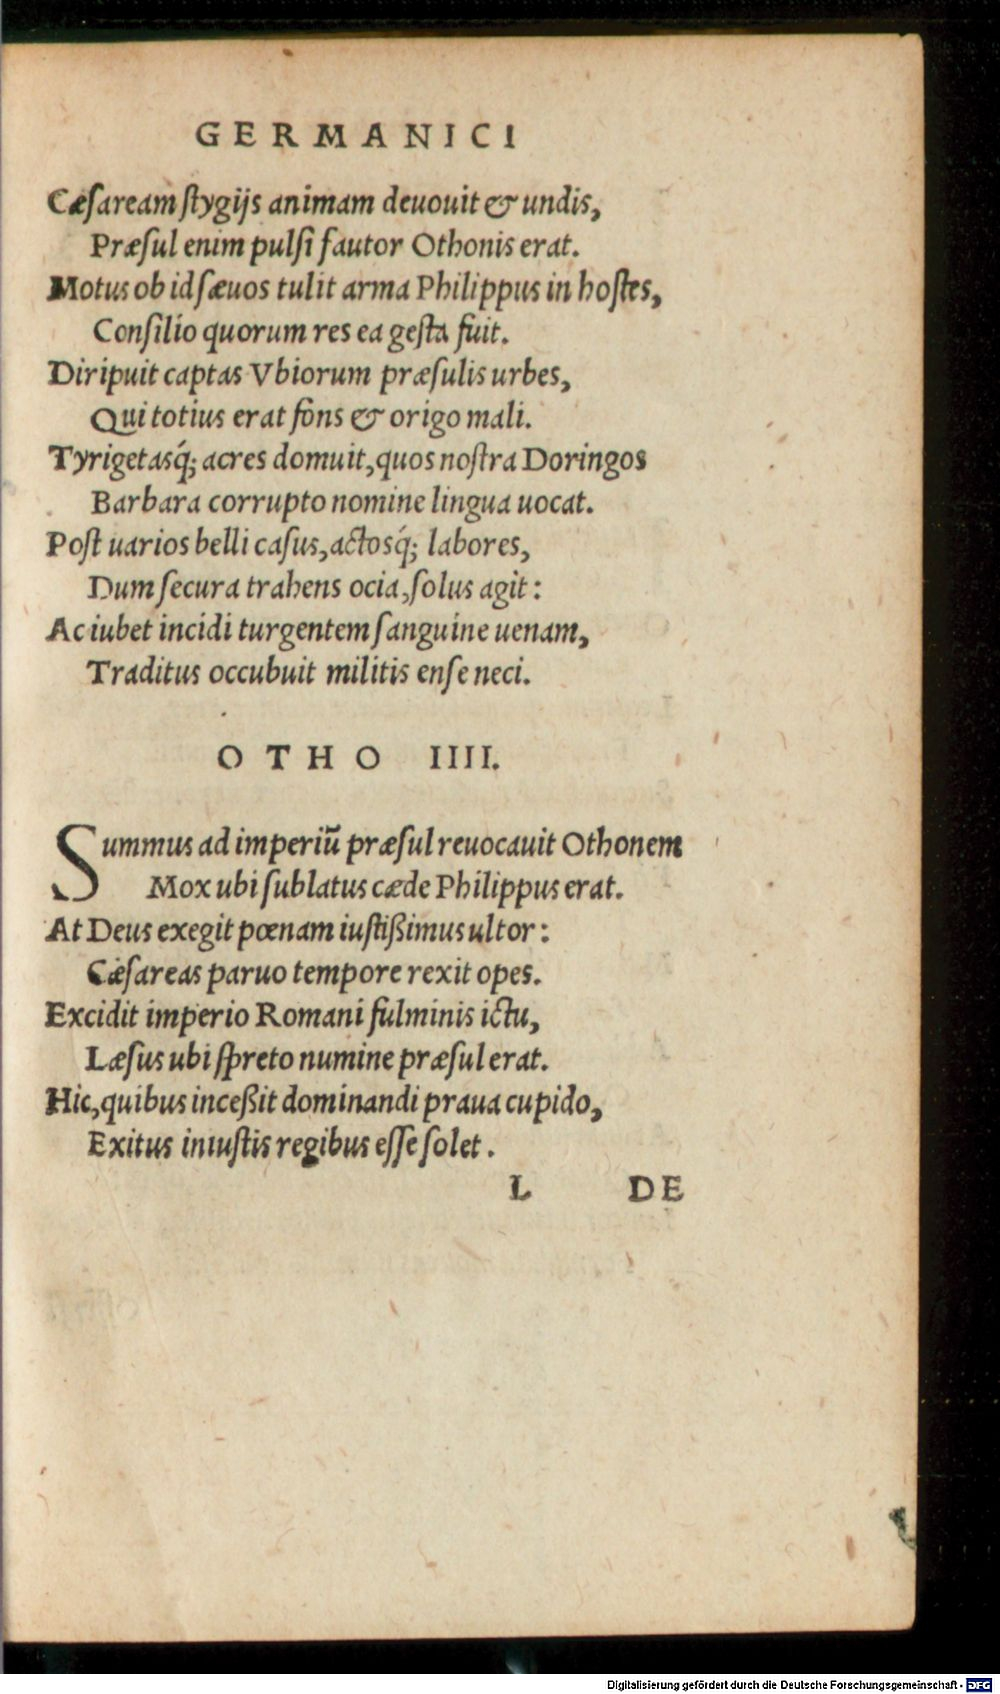 GERMANICI
Cæsaream stygijs animam deuouit & undis,
Præsul enim pulsi fautor Othonis erat.
Motus ob id sæuos tulit arma Philippus in hostes,
Consilio quorum res ea gesta fuit.
Diripuit captas Vbiorum præsulis urbes,
Qui totius erat fons & origo mali.
Tyrigetasq́; acres domuit, quos nostra Doringos
Barbara corrupto nomine lingua uocat.
Post uarios belli casus, actosq́; labores,
Dum secura trahens ocia, solus agit:
Ac iubet incidi turgentem sanguine uenam,
Traditus occubuit militis ense neci.
OTHO IIII.
Summus ad imperiū præsul reuocauit Othonem
Mox ubi sublatus cæde Philippus erat.
At Deus exegit pœnam iustißimus ultor:
Cæsareas paruo tempore rexit opes.
Excidit imperio Romani fulminis ictu,
Læsus ubi spreto numine præsul erat.
Hic, quibus inceßit dominandi praua cupido,
Exitus iniustis regibus esse solet.
L DE
Digitalisierung gefördert durch die Deutsche Forschungsgemeinschaft - DFG